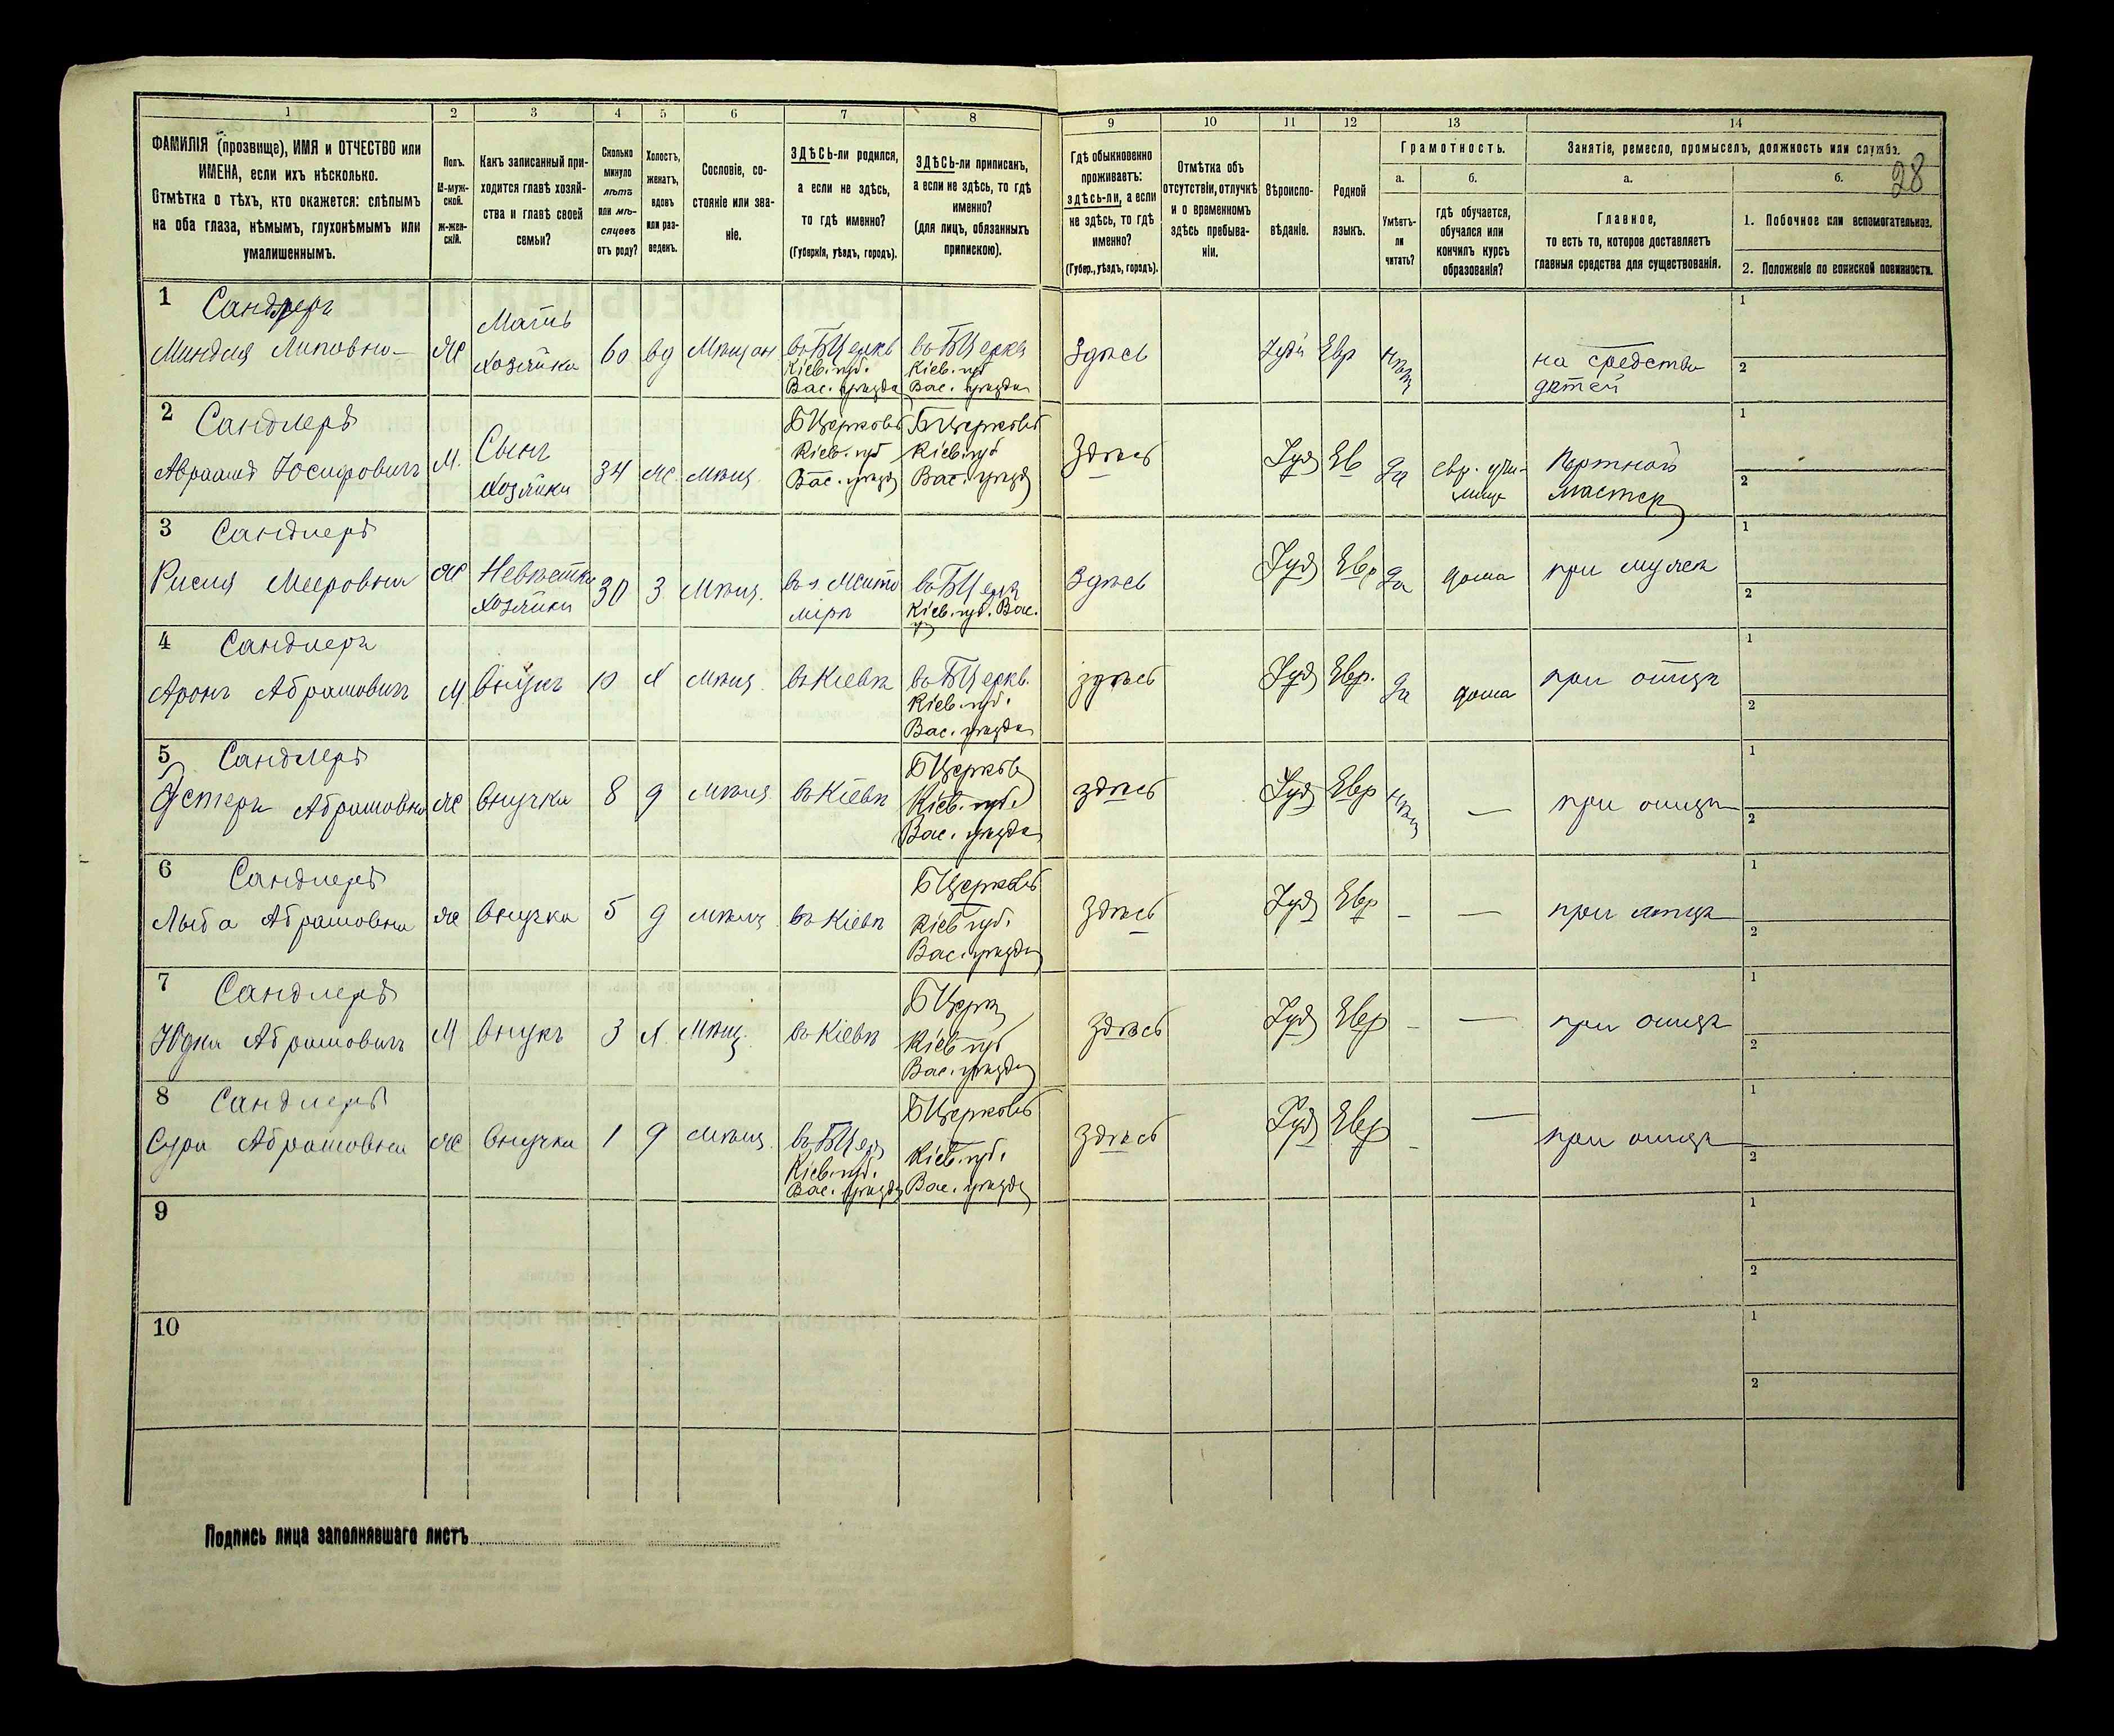 1
2
3
4
5
6
7
8
ФАМИЛІЯ (прозвище), ИМЯ и ОТЧЕСТВО или
ИМЕНА, если ихъ нѣсколько.
Отмѣтка о тѣхъ, кто окажется: слѣпымъ
на оба глаза, нѣмымъ, глухонѣмымъ или
умалишеннымъ.
Полъ.
М-муж-
ской.
ж-жен-
скій.
Какъ записанный при-
ходится главѣ хозяй-
ства и главѣ своей
семьи?
Сколько
минуло
лѣтъ
или мѣ-
сяцевъ
отъ роду?
Холостъ,
женатъ,
вдовъ
или раз-
веденъ.
Сословіе, со-
стояніе или зва-
ніе.
ЗДѢСЬ-ли родился,
а если не здѣсь,
то гдѣ именно?
(Губернія, уѣздъ, городъ).
ЗДѢСЬ-ли приписанъ,
а если не здѣсь, то гдѣ
именно?
(для лицъ, обязанныхъ
припискою).
9
10
11
12
13
14
Гдѣ обыкновенно
проживаетъ:
здѣсь-ли, а если
не здѣсь, то гдѣ
именно?
(Губер., уѣздъ, городъ).
Отмѣтка объ
отсутствіи, отлучкѣ
и о временномъ
здѣсь пребыва-
ніи.
Вѣроиспо-
вѣданіе.
Родной
языкъ.
Грамотность.
а.
Умѣетъ-
ли
читать?
б.
гдѣ обучается,
обучался или
кончилъ курсъ
образованія?
Занятіе, ремесло, промыселъ, должность или служба.
28
а.
Главное,
то есть то, которое доставляетъ
главныя средства для существованія.
б.
1. Побочное или вспомогательное.
2. Положеніе по воинской повинности.
1 Сандлеръ
Миндля Липовна
Ж
Мать
хозяйки
60
вд
Мѣщан
въ БЦеркв
Кіев. губ.
Вас. уѣзда
въ БЦеркв
Кіев. губ
Вас. уѣзда
Здѣсь
Іудей
Евр
нѣтъ
на средства
дѣтей
1
2
2 Сандлеръ
Авраамъ Юсифовичъ
М.
Сынъ
хозяйки
34
ж.
мѣщ.
БЦерковь
Кіев. губ
Вас. уѣзд
БЦерковь
Кіев. губ
Вас. уѣзд
Здѣсь
Іуд
Ев
да
евр. учи-
лище
Портной
мастер
1
2
3 Сандлеръ
Рися Мееровна
Ж
Невѣстка
хозяйки
30
З
мѣщ.
въ г. Жито
мірѣ
въ БЦеркв
Кіев. губ. Вас.
у
Здѣсь
Іуд
Евр
да
дома
при мужѣ
1
2
4 Сандлеръ
Аронъ Абрамовичъ
М
Внукъ
10
х
мѣщ.
въ Кіевѣ
въ БЦеркв.
Кіев. губ.
Вас. уѣзда
здѣсь
Іуд
Евр.
да
дома
при отцѣ
1
2
5 Сандлеръ
Эстеръ Абрамовна
Ж
Внучка
8
д
мѣщ
въ Кіевѣ
БЦерковь
Кіев. губ.
Вас. уѣзда
здѣсь
Іуд
Евр
нѣтъ
—
при отцѣ
1
2
6 Сандлеръ
Лыба Абрамовна
Ж
Внучка
5
д
мѣщ
въ Кіевѣ
БЦерковь
Кіев губ.
Вас. уѣзда
Здѣсь
Іуд
Евр
—
—
при отцѣ
1
2
7 Сандлеръ
Юдка Абрамовичъ
М
Внукъ
3
х.
Мѣщ.
въ Кіевѣ
БЦерк
Кіев губ
Вас. уѣзда
здѣсь
Іуд
Евр
—
—
при отцѣ
1
2
8 Сандлеръ
Сура Абрамовна
Ж
Внучка
1
д
мѣщ.
въ БЦер
Кіев. губ.
Вас. уѣзда
БЦерковь
Кіев. губ.
Вас. уѣзда
здѣсь
Іуд
Евр
—
—
при отцѣ
1
2
9
1
2
10
1
2
Подпись лица заполнявшаго листъ